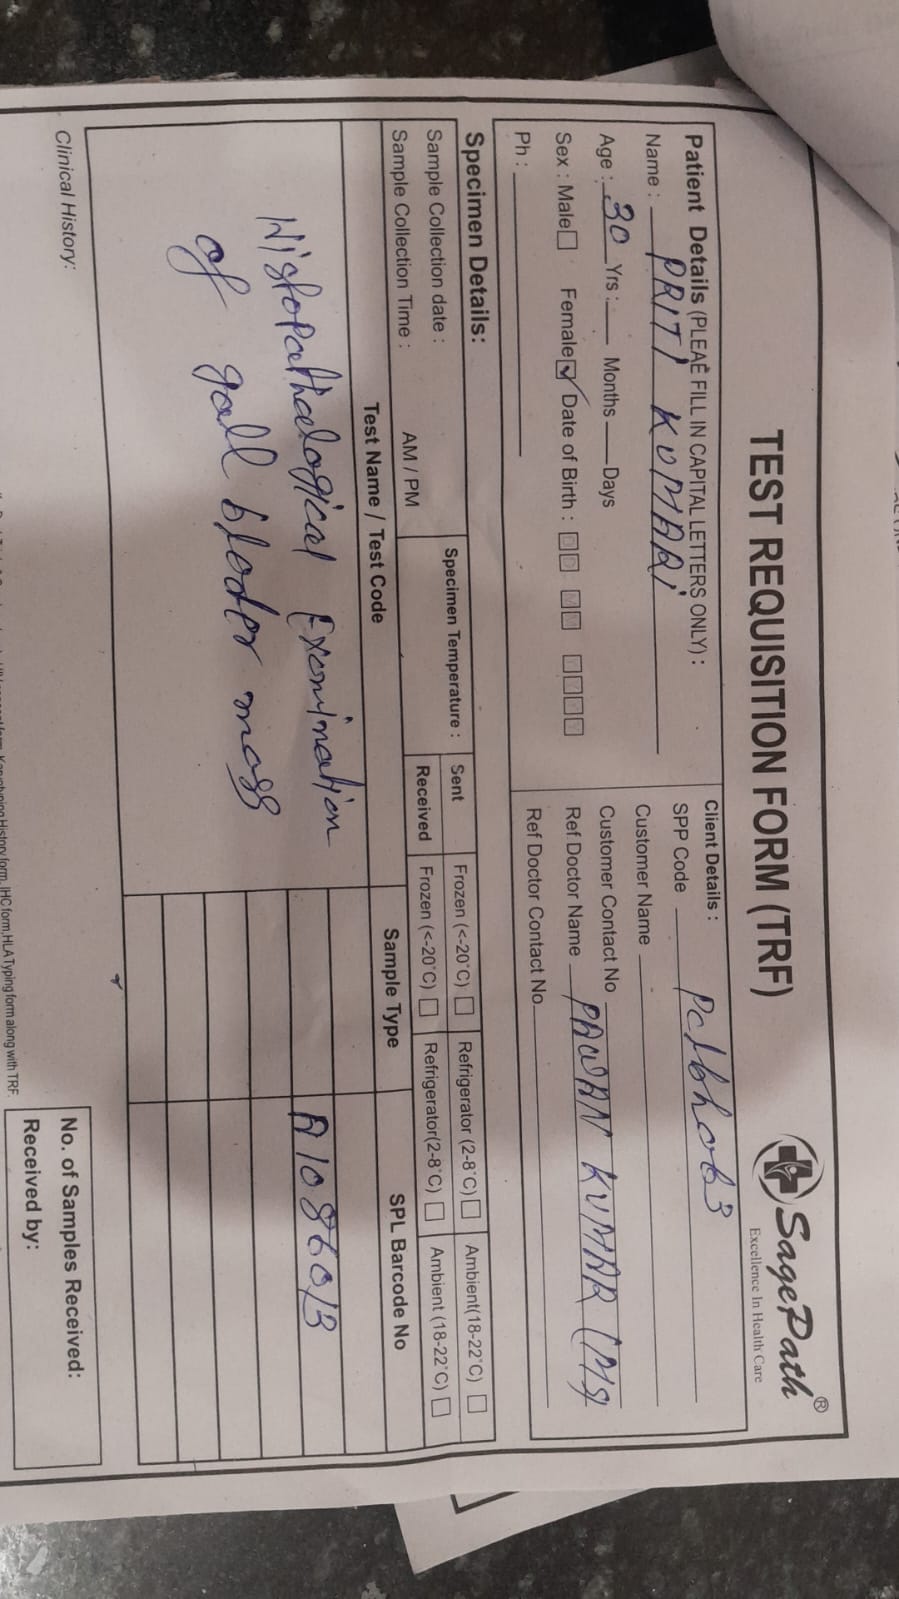 TEST REQUISITION FORM (TRF)
SagePath®
Excellence In Health Care
Patient Details (PLEAE FILL IN CAPITAL LETTERS ONLY) :
Name : PRITI KUMARI
Age : 30 Yrs : Months Days
Sex : Male Female Date of Birth : D D M M Y Y Y Y
Ph :
Client Details :
SPP Code
Customer Name
Customer Contact No
Ref Doctor Name PAWAN KUMAR (MS)
Ref Doctor Contact No
Specimen Details:
Sample Collection date :
Sample Collection Time : AM / PM
Specimen Temperature :
Sent Frozen (<-20°C) Refrigerator (2-8°C) Ambient(18-22°C)
Received Frozen (<-20°C) Refrigerator(2-8°C) Ambient (18-22°C)
Test Name / Test Code Sample Type SPL Barcode No
Histopathological Examination
of gall blader mass
A1086013
Clinical History:
Karyotyping History form, IHC form,HLA Typing form along with TRF.
No. of Samples Received:
Received by: